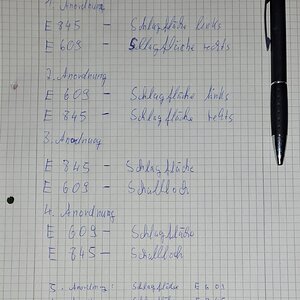 1. Anordnung
E 845 – Schlagfläche links
E 609 – Schlagfläche rechts
2. Anordnung
E 609 – Schlagfläche links
E 845 – Schlagfläche rechts
3. Anordnung
E 845 – Schlagfläche
E 609 – Schalloch
4. Anordnung
E 609 – Schlagfläche
E 845 – Schalloch
5. Anordnung: Schlagfläche E 609